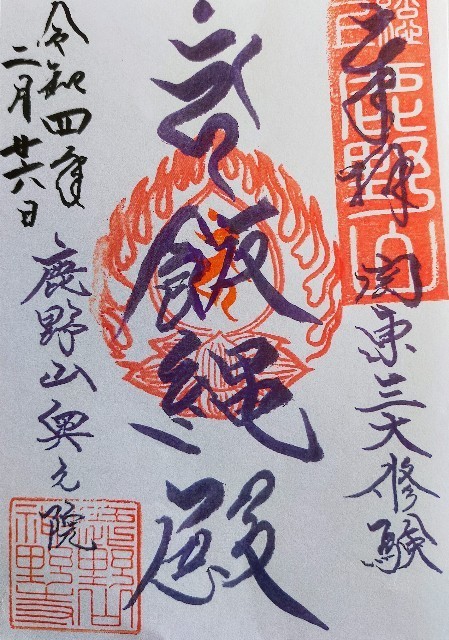 奉拝
関東三大修験
鹿野山
飯縄殿
鹿野山奥之院
令和四年
二月廿六日
鹿野山
神野寺